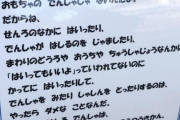 おもちゃの でんしゃじゃ
だからね、
せんろのなかに はいったり、
でんしゃが はしるのを じゃましたり、
まわりのどうろや おうちや ちゅうしゃじょうなんか
「はいってもいいよ」っていわれてないのに
かってに はいったりして、
でんしゃを みたり しゃしんを とったりするのは、
やったら ダメな ことなんだ。
でんしゃは、